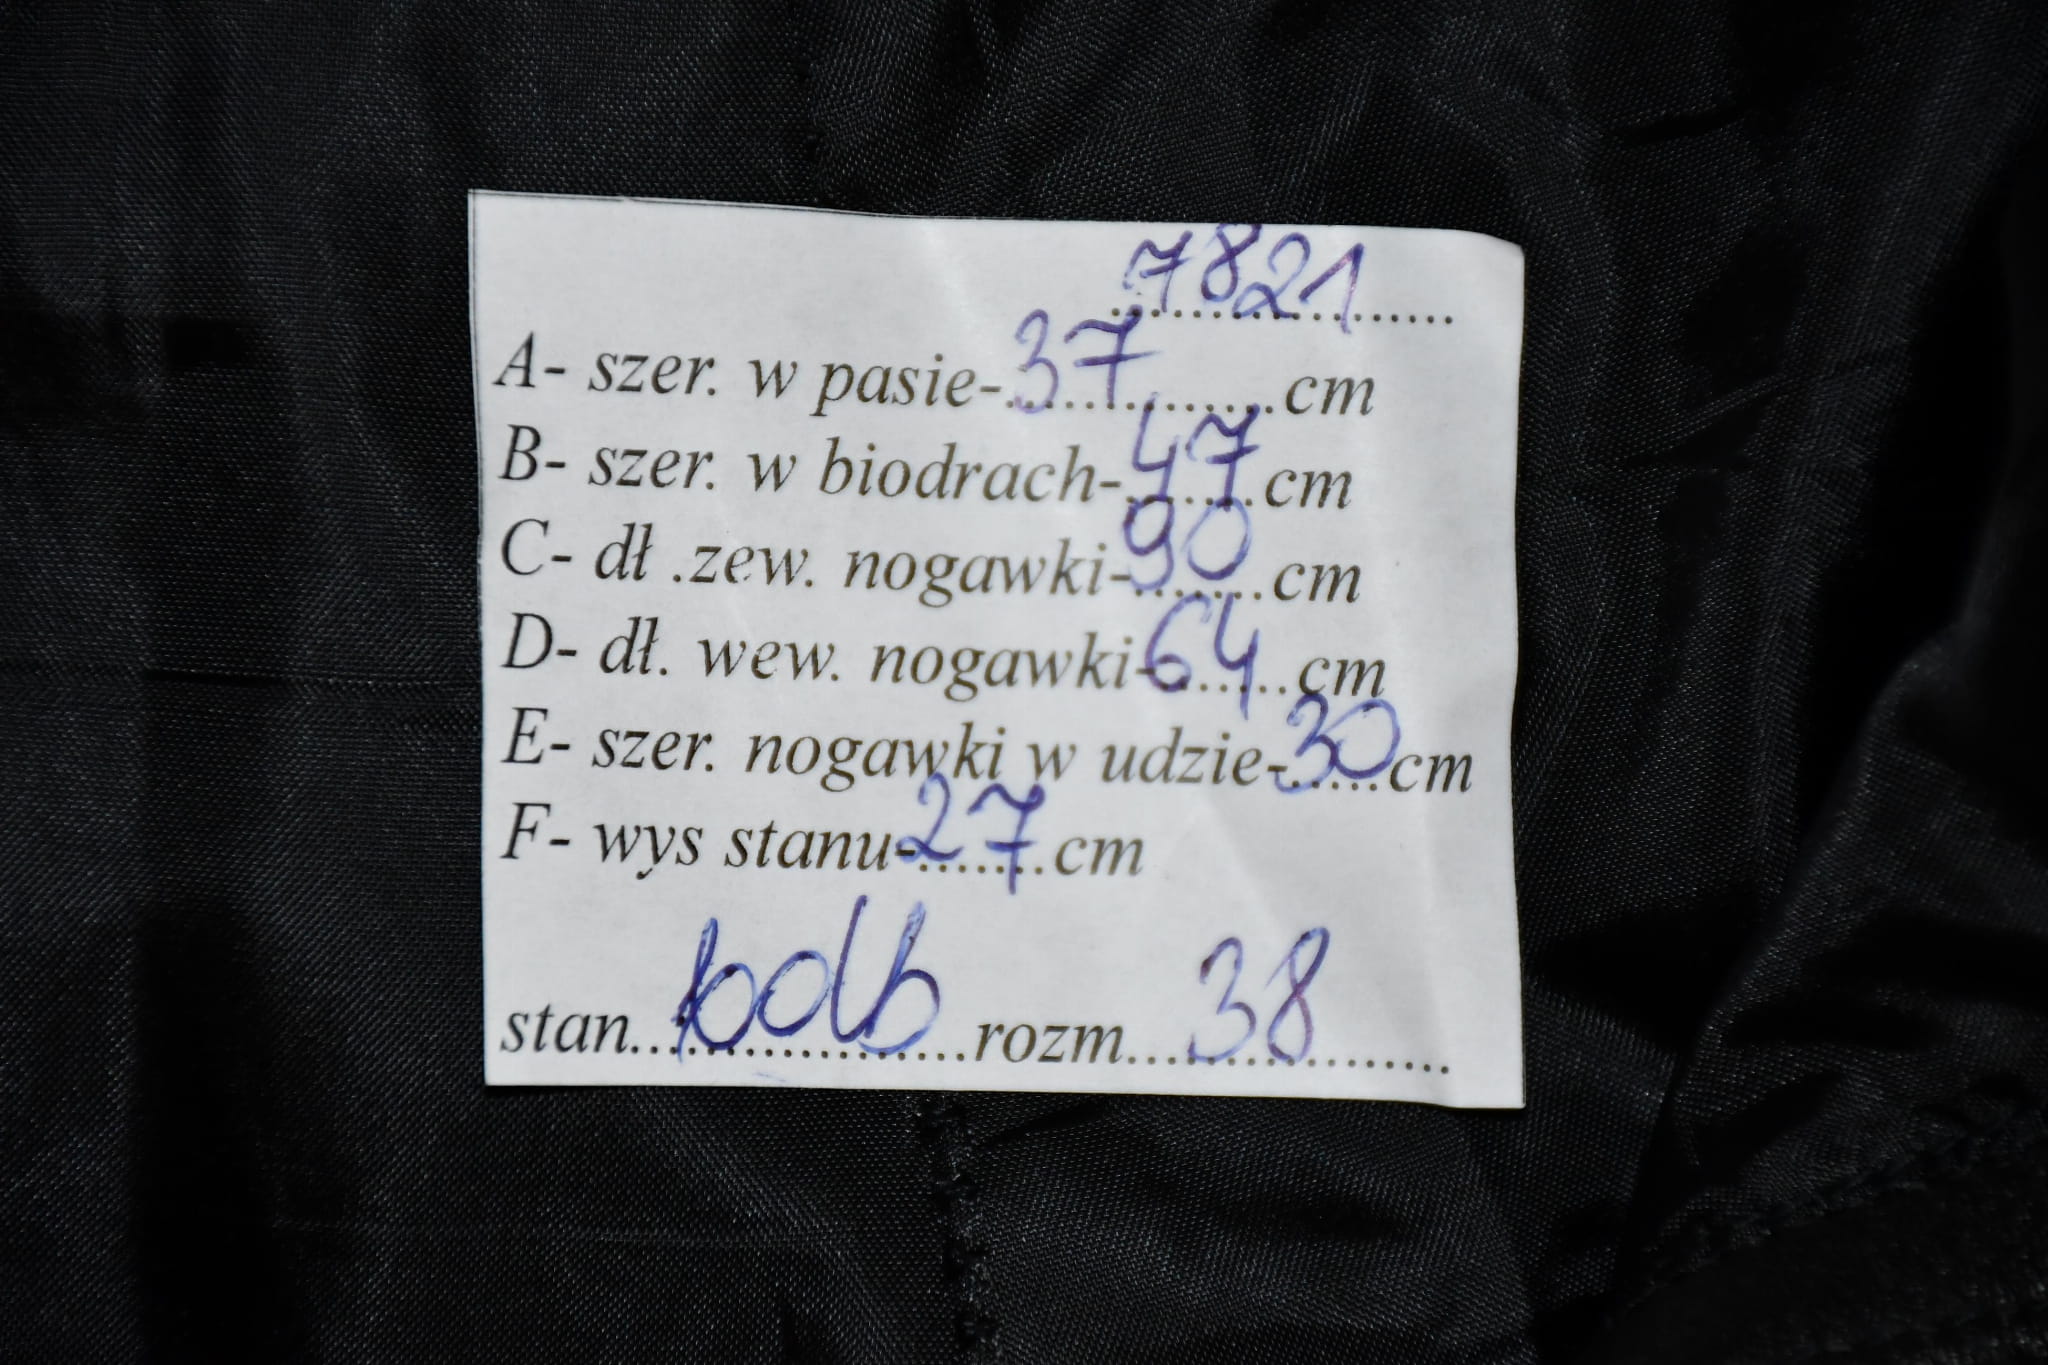 7821
A- szer. w pasie-37cm
B- szer. w biodrach-47cm
C- dł .zew. nogawki-90cm
D- dł. wew. nogawki-64cm
E- szer. nogawki w udzie-30cm
F- wys stanu-27cm
stan................rozm...38